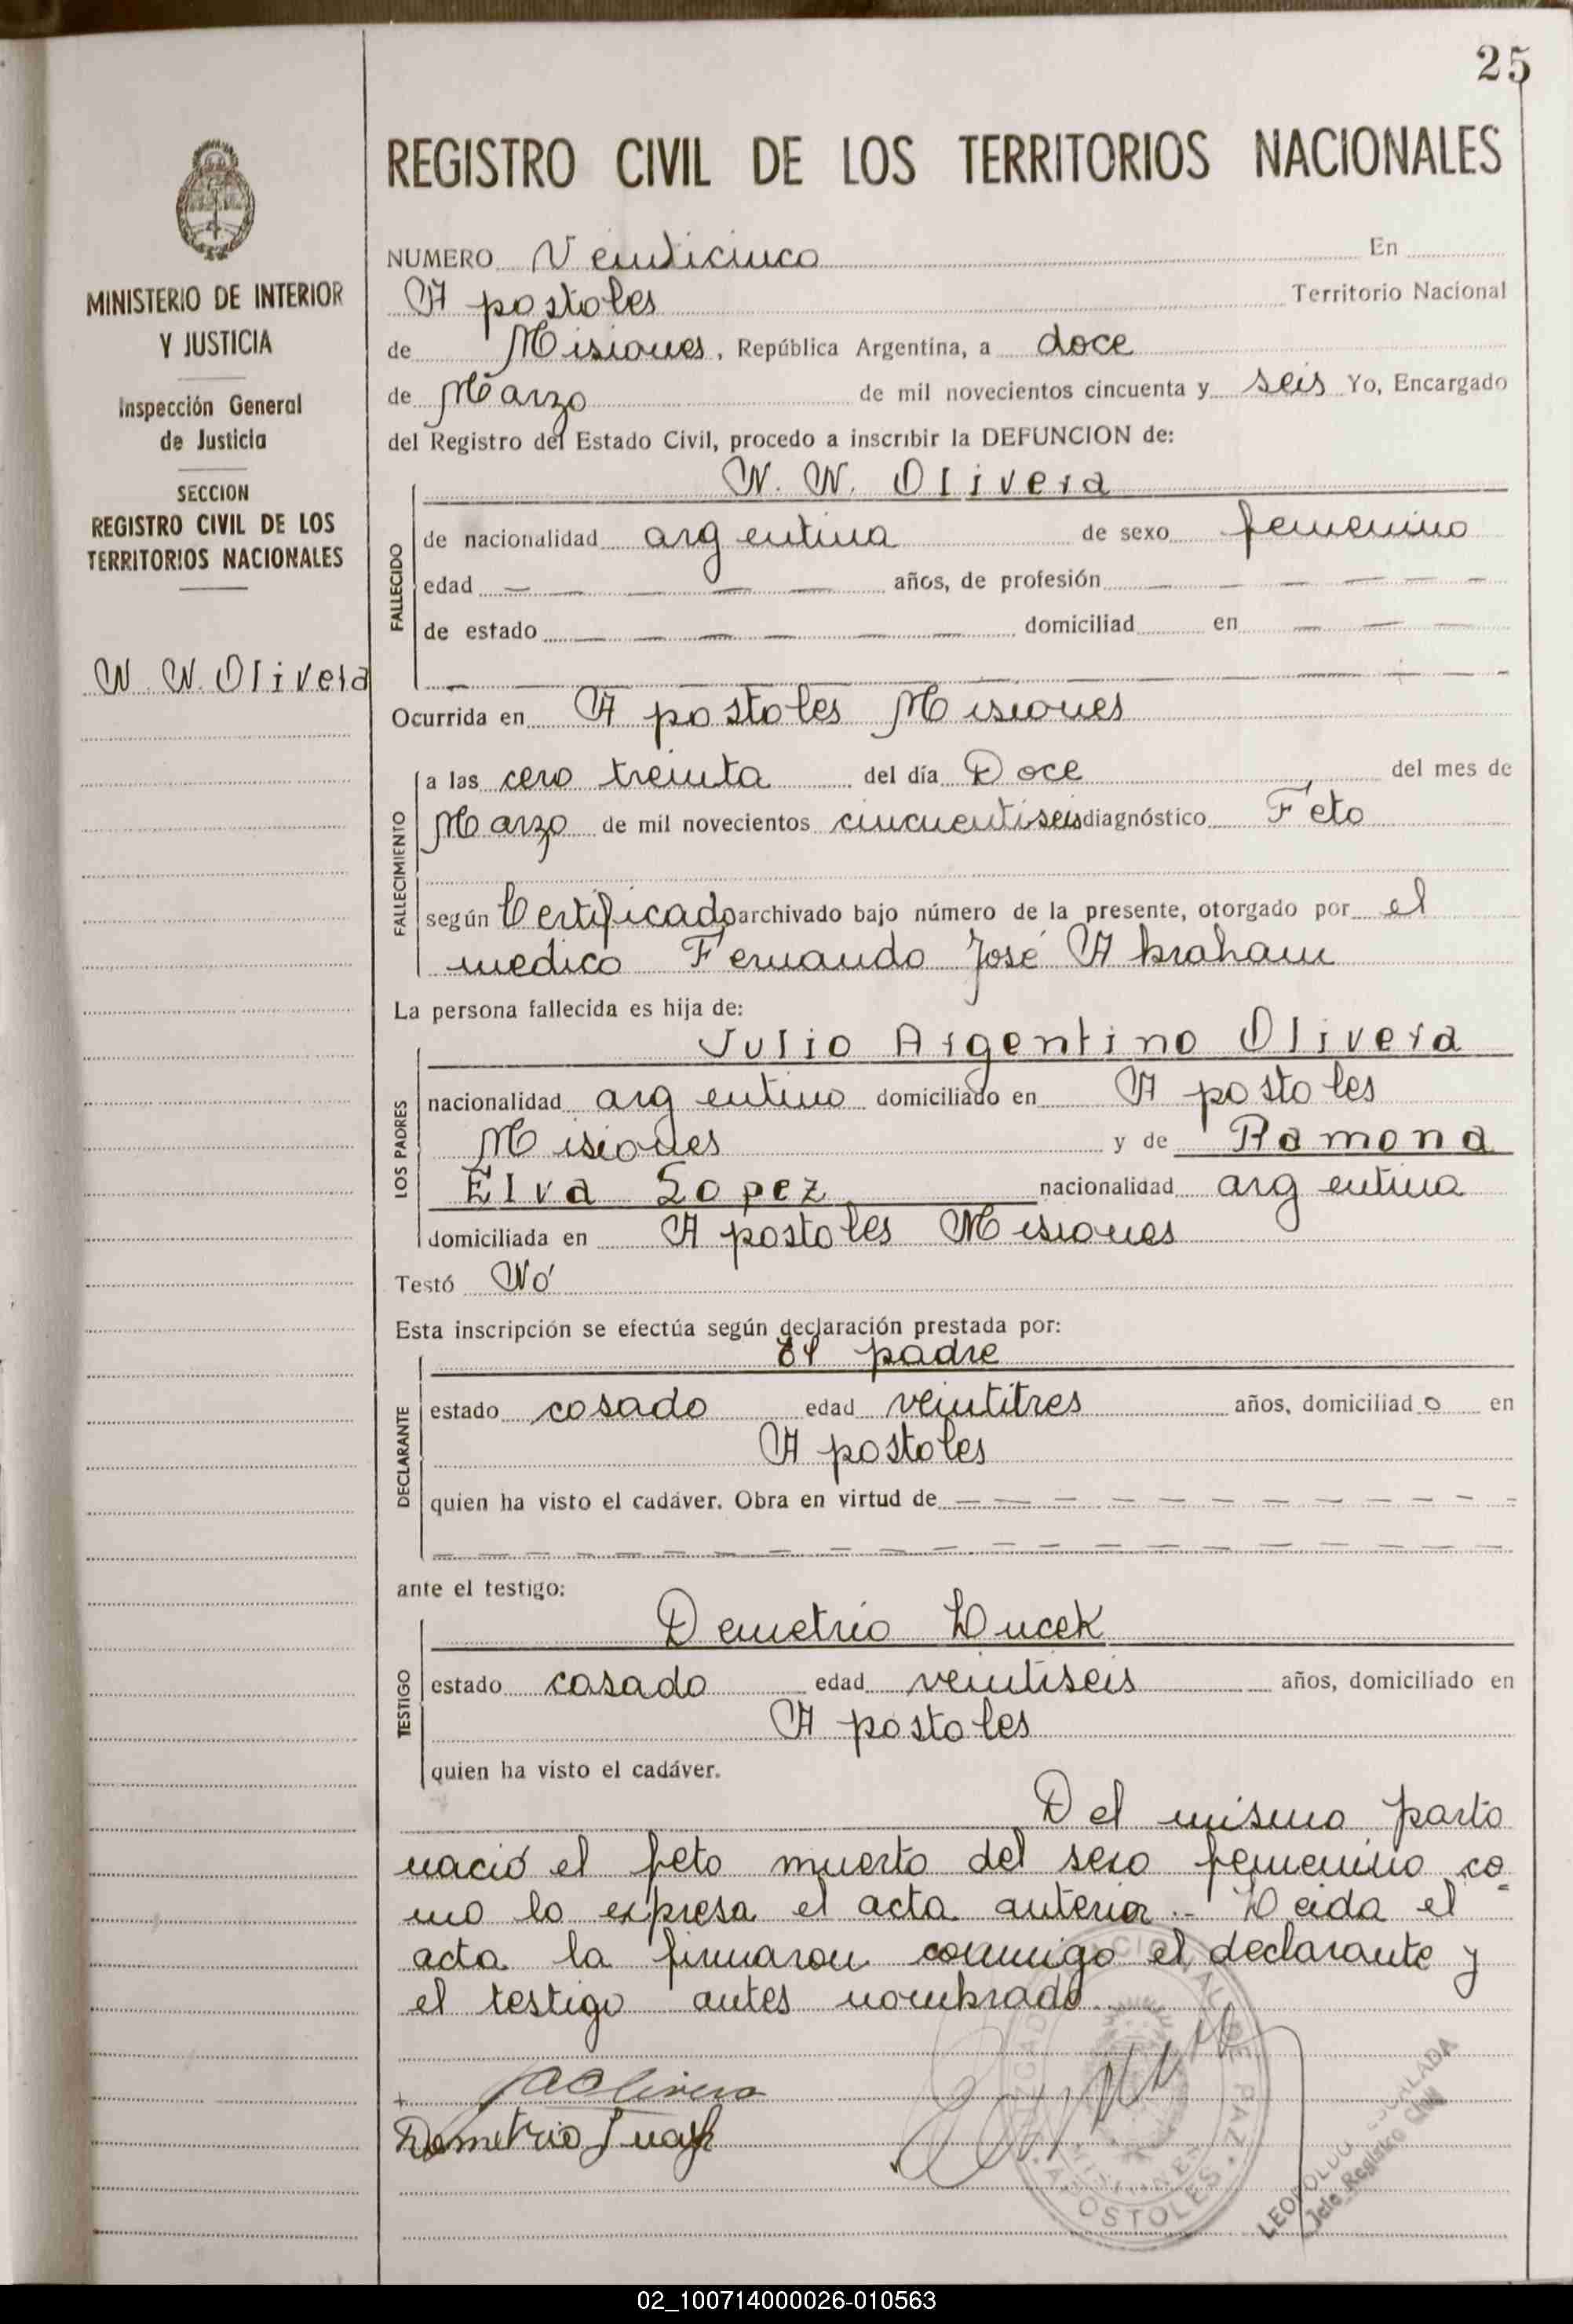 25
REGISTRO CIVIL DE LOS TERRITORIOS NACIONALES
MINISTERIO DE INTERIOR
Y JUSTICIA
Inspección General
de Justicia
SECCION
REGISTRO CIVIL DE LOS
TERRITORIOS NACIONALES
N. N. Olivera
NUMERO Veinticinco En
Apostoles Territorio Nacional
de Misiones, República Argentina, a doce
de Marzo de mil novecientos cincuenta y seis Yo, Encargado
del Registro del Estado Civil, procedo a inscribir la DEFUNCION de:
N. N. Olivera
FALLECIDO
de nacionalidad argentina de sexo femenino
edad — — — — años, de profesión — — — — —
de estado — — — — — domiciliad en — — —
Ocurrida en Apostoles Misiones
FALLECIMIENTO
a las cero treinta del día Doce del mes de
Marzo de mil novecientos cincuentiseis diagnóstico Feto
según Certificado archivado bajo número de la presente, otorgado por el
medico Fernando José Abraham
La persona fallecida es hija de:
LOS PADRES
Julio Argentino Olivera
nacionalidad argentino domiciliado en Apostoles
Misiones y de Ramona
Elva Lopez nacionalidad argentina
domiciliada en Apostoles Misiones
Testó Nó
Esta inscripción se efectúa según declaración prestada por:
DECLARANTE
El padre
estado casado edad veintitres años, domiciliado en
Apostoles
quien ha visto el cadáver. Obra en virtud de — — — — — — — — — — —
ante el testigo:
TESTIGO
Demetrio Lucek
estado casado edad veintiseis años, domiciliado en
Apostoles
quien ha visto el cadáver.
Del mismo parto
nació el feto muerto del sexo femenino co
mo lo expresa el acta anterior.- Leida el
acta la firmaron conmigo el declarante y
el testigo antes nombrado.
JAOlivera
Demetrio
DE PAZ
MISIONES
APOSTOLES
LEOPOLDO
Jefe Registro Civil
02_100714000026-010563